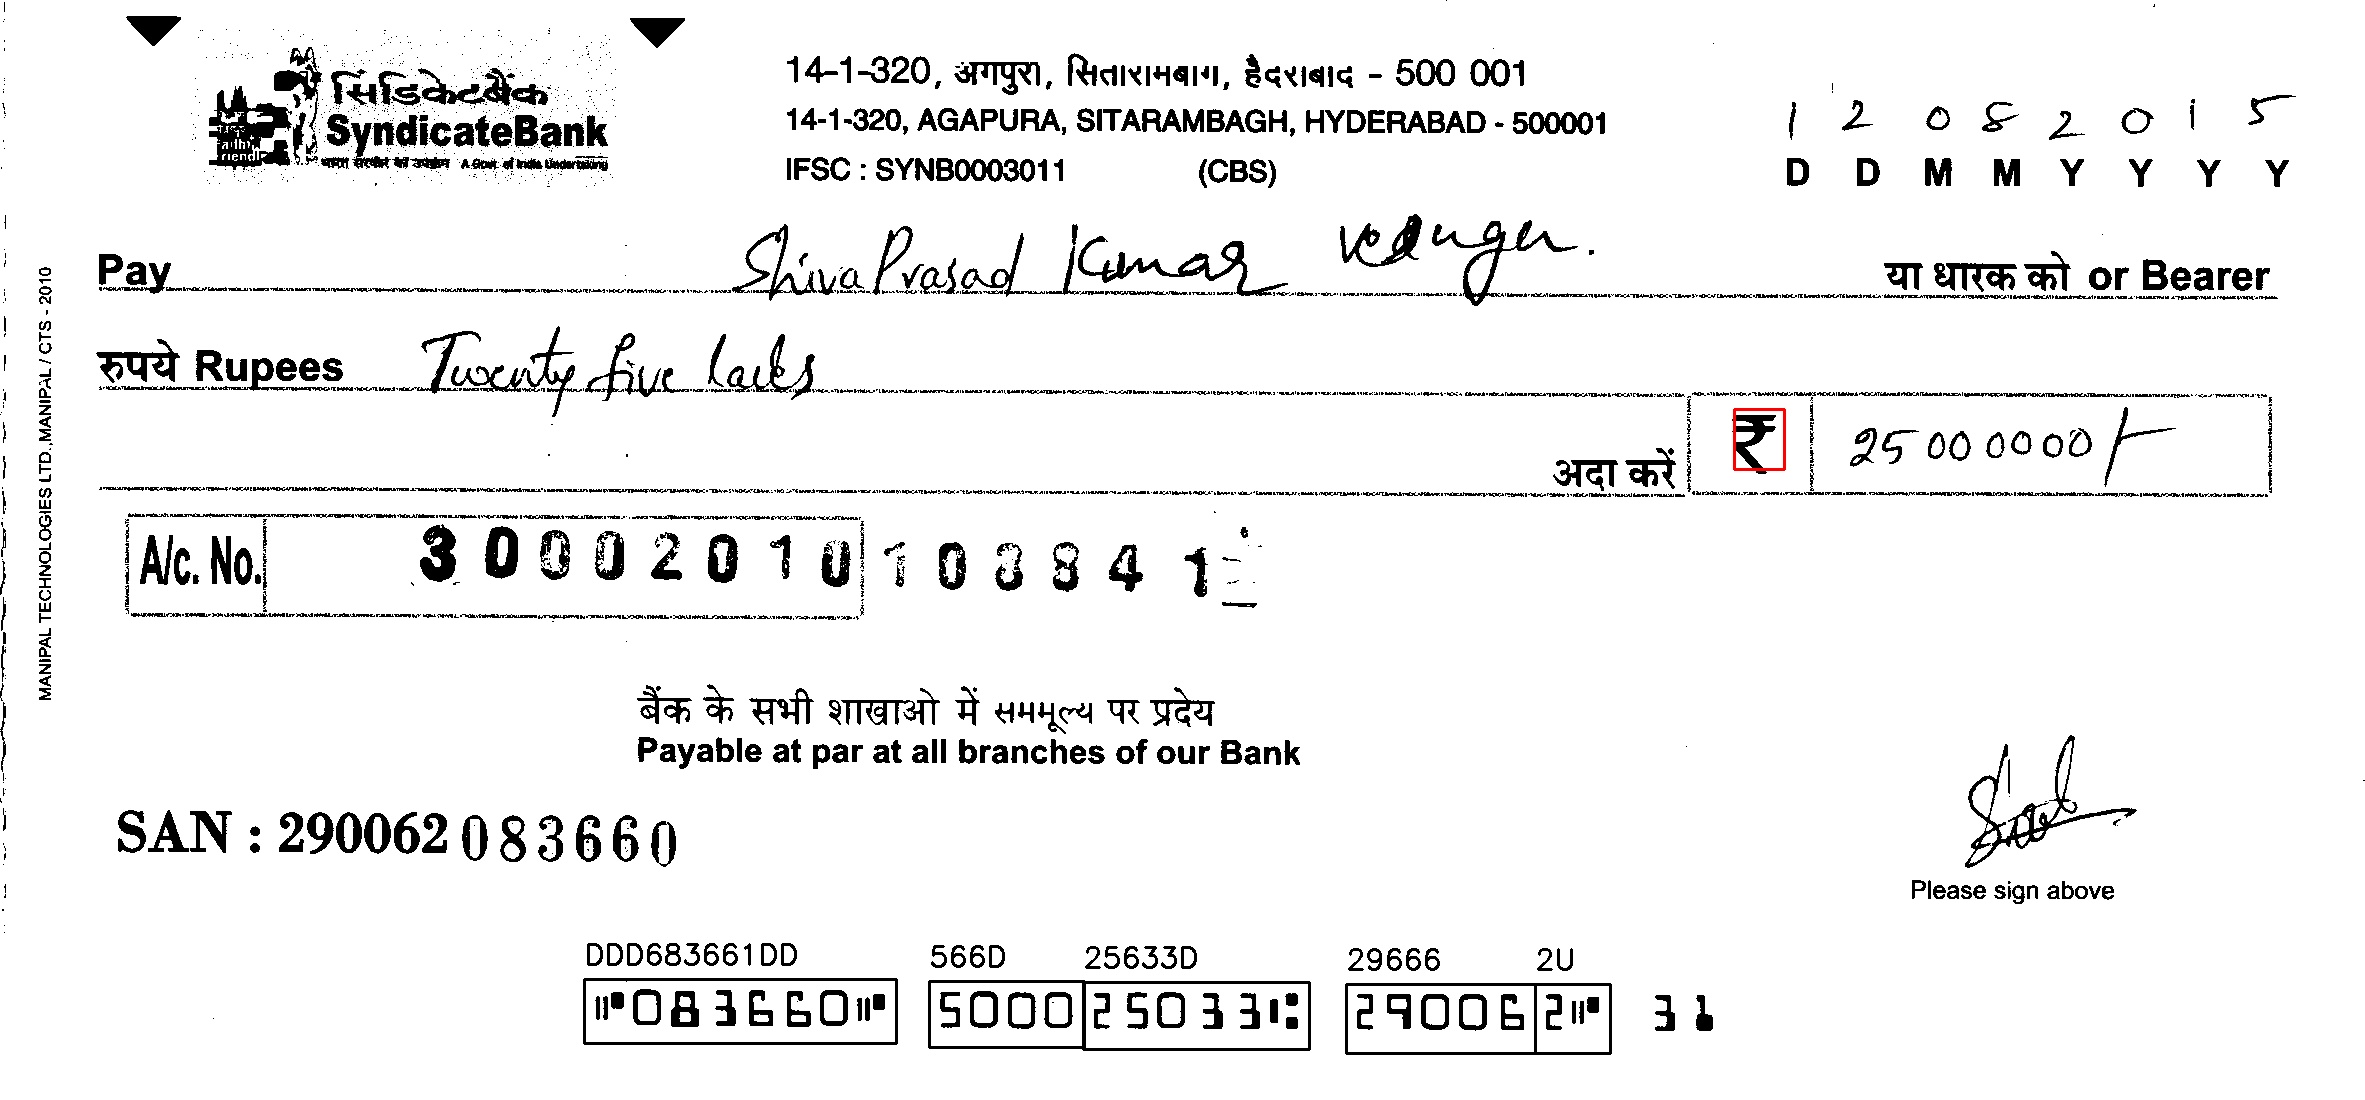 सिंडिकेटबैंक
SyndicateBank
भारत सरकार का उपक्रम A Govt. of India Undertaking
14-1-320, अगपुरा, सितारामबाग, हैदराबाद - 500 001
14-1-320, AGAPURA, SITARAMBAGH, HYDERABAD - 500001
IFSC : SYNB0003011 (CBS)
1 2 0 8 2 0 1 5
D D M M Y Y Y Y
Pay Shiva Prasad Kumar या धारक को or Bearer
रुपये Rupees Twenty five lacks
अदा करें ₹ 25 00 000 00/-
A/c. No. 30002010108841
MANIPAL TECHNOLOGIES LTD.,MANIPAL / CTS - 2010
बैंक के सभी शाखाओ में सममूल्य पर प्रदेय
Payable at par at all branches of our Bank
SAN : 290062083660
Please sign above
DDD683661DD 566D 25633D 29666 2U
⑈083660⑈ 500025033⑆ 290062⑈ 31